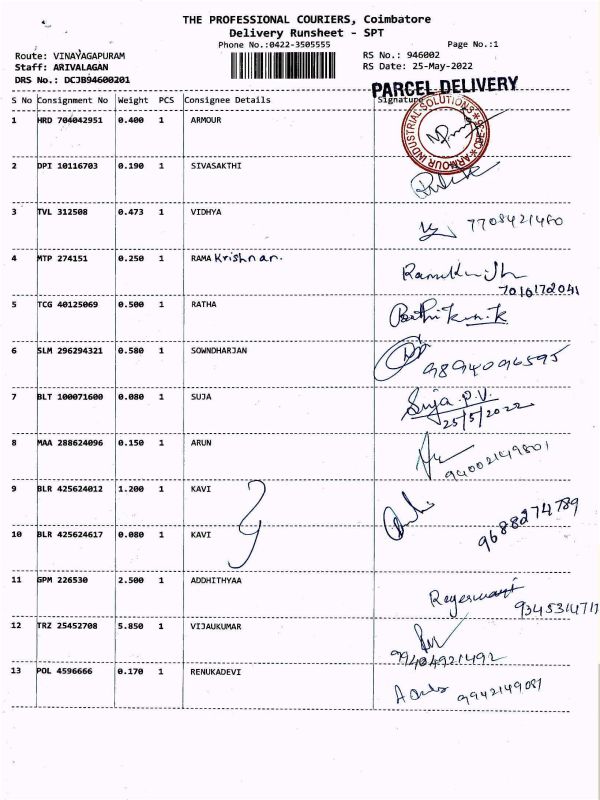 THE PROFESSIONAL COURIERS, Coimbatore
Delivery Runsheet - SPT
Phone No.:0422-3505555 Page No.:1
Route: VINAYAGAPURAM RS No.: 946002
Staff: ARIVALAGAN RS Date: 25-May-2022
DRS No.: DCJB94600201
PARCEL DELIVERY
S No Consignment No Weight PCS Consignee Details Signature
ARMOUR INDUSTRIAL SOLUTIONS
1 HRD 704042951 0.400 1 ARMOUR
2 DPI 10116703 0.190 1 SIVASAKTHI
3 TVL 312508 0.473 1 VIDHYA 7708421460
4 MTP 274151 0.250 1 RAMA Krishnan.
7010172041
5 TCG 40125069 0.500 1 RATHA
6 SLM 296294321 0.580 1 SOWNDHARJAN
9894096595
7 BLT 100071600 0.080 1 SUJA Suja.P.V.
25/5/2022
8 MAA 288624096 0.150 1 ARUN
94002149801
9 BLR 425624012 1.200 1 KAVI
9688274789
10 BLR 425624617 0.080 1 KAVI
11 GPM 226530 2.500 1 ADDHITHYAA
9345314717
12 TRZ 25452708 5.850 1 VIJAUKUMAR
99404921492
13 POL 4596666 0.170 1 RENUKADEVI 9942149087